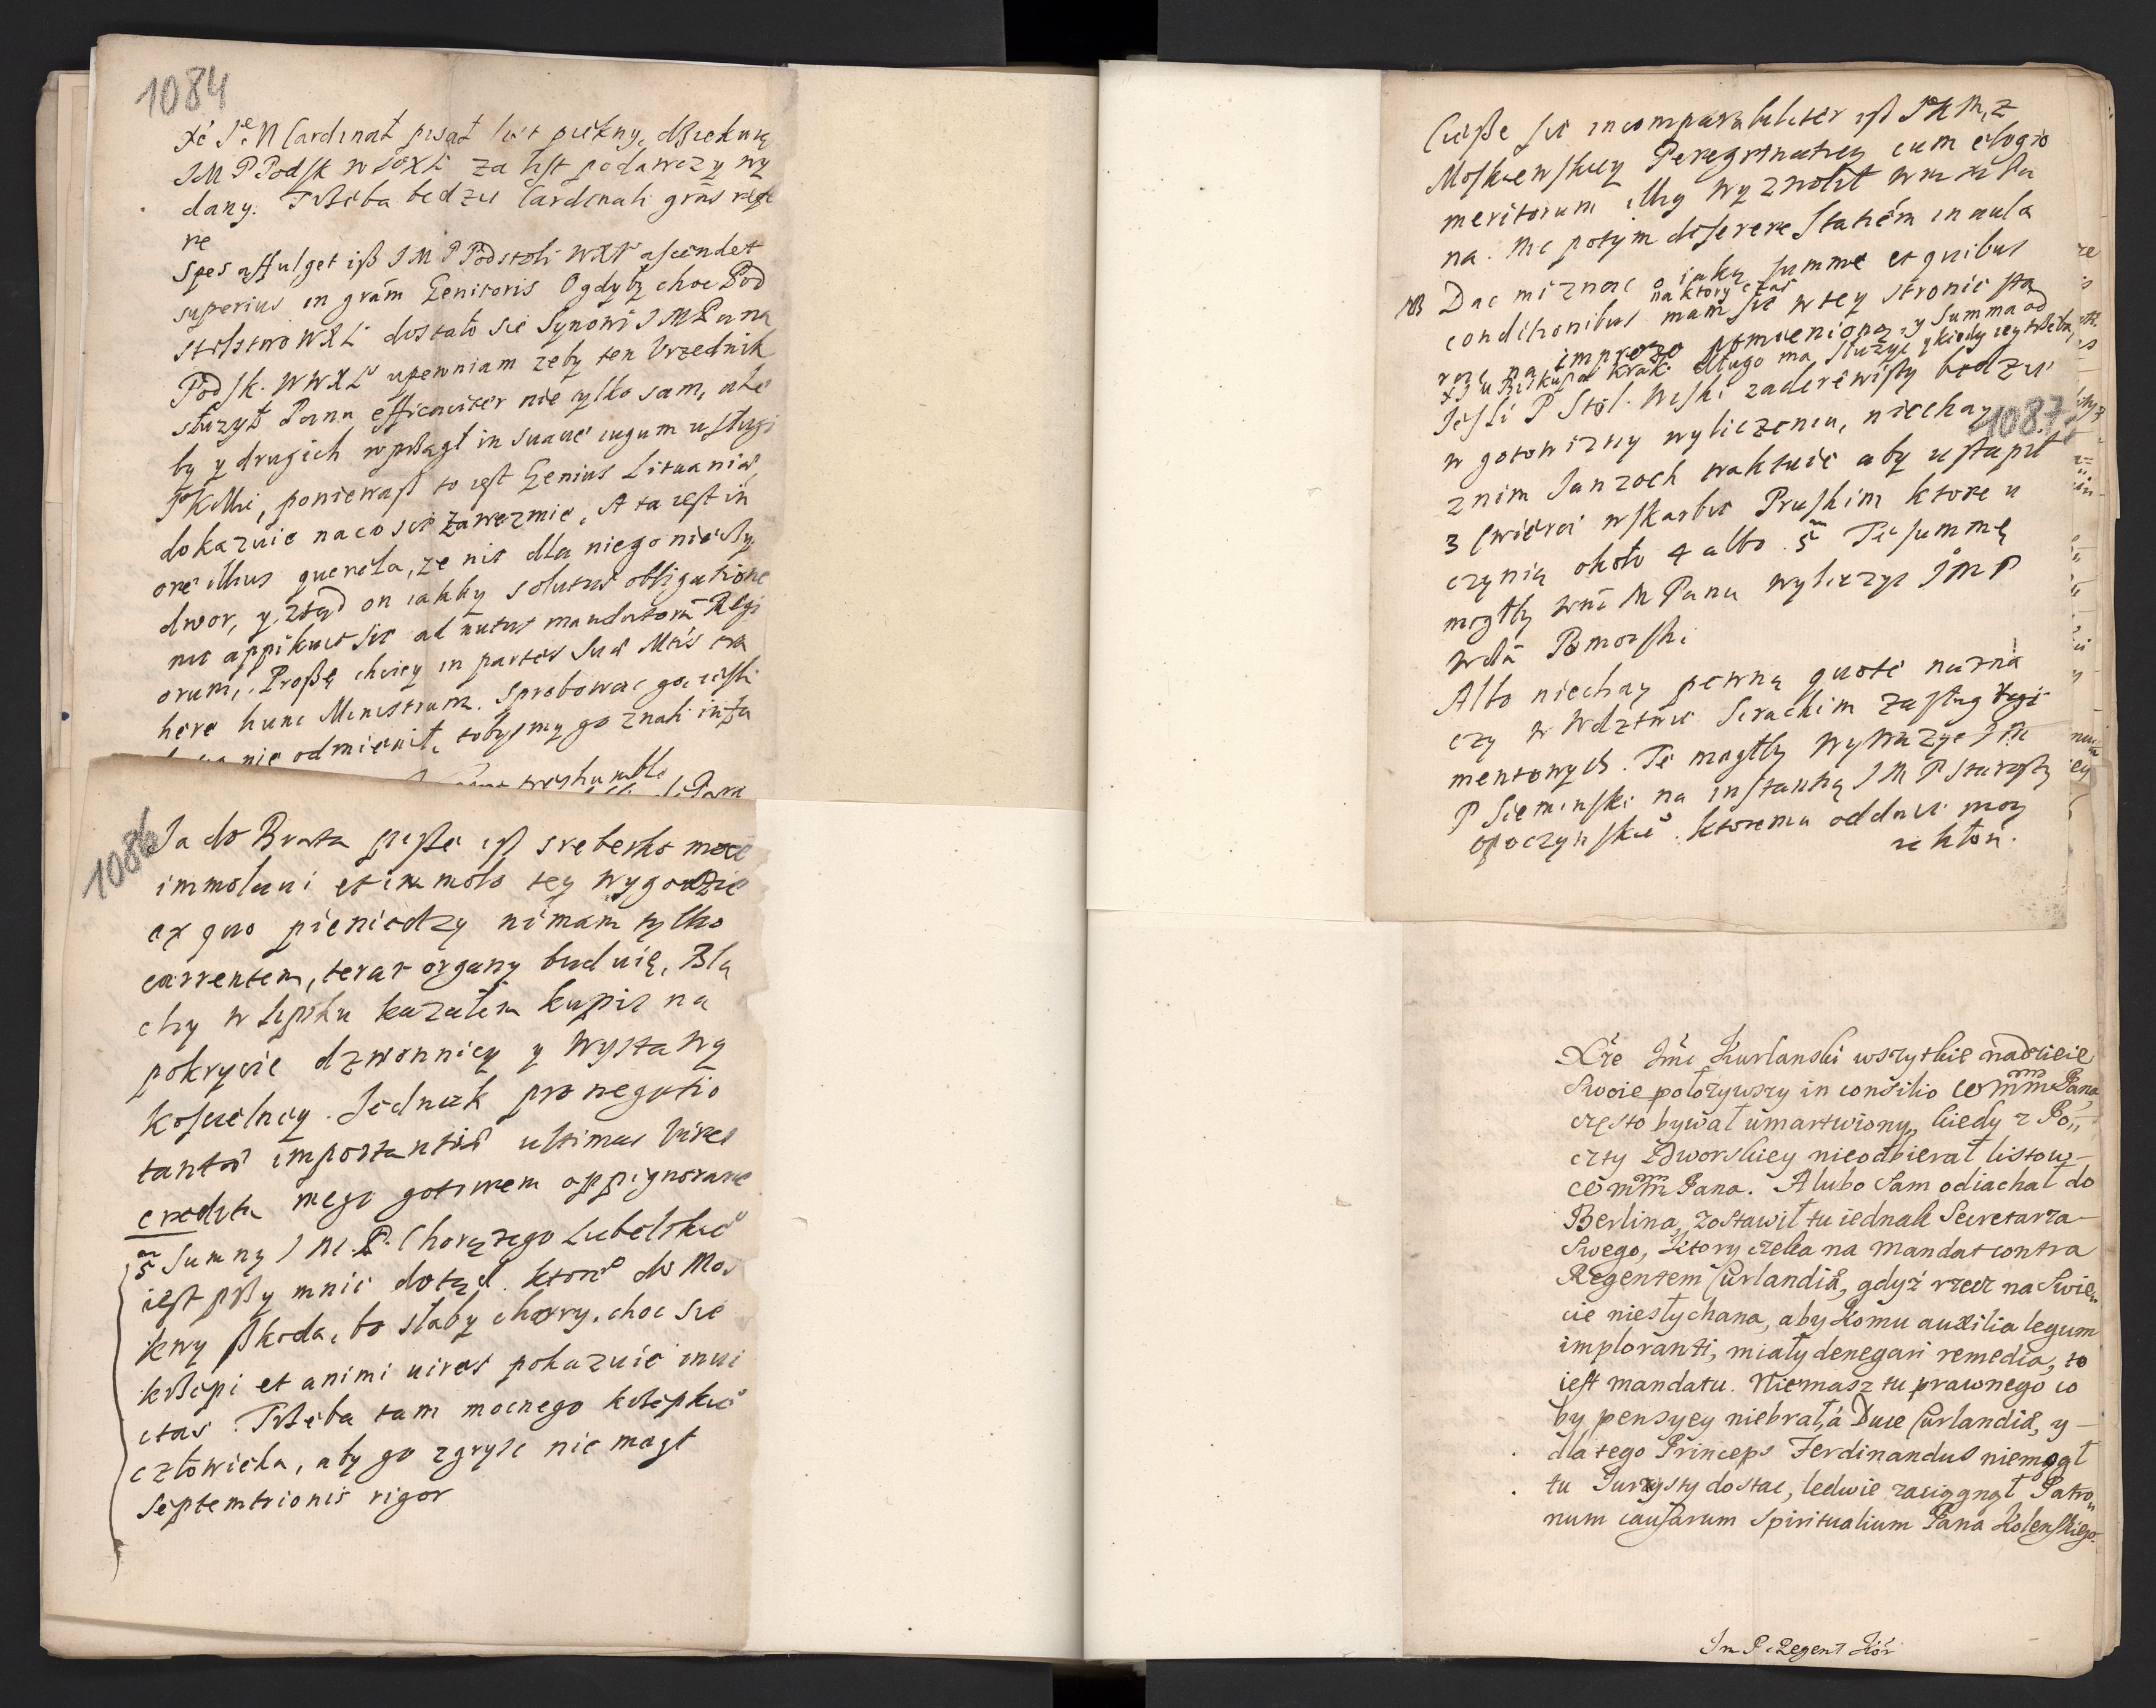 1084
Xe Je M Cardinał pisał list piękny, dßiekuią
JM P Podsk W XL za list podawczy wy
dany. Trßeba będzie Cardinali gras refe
re
Spes affulget iß JM P Podstoli WXL ascendet
superius in gram Genitoris Ogdyby choc Pod
stolstwo WXL dostało sie Synowi JMPana
Podsk. WWXL upewniam zeby ten Vrzednik
słuzył Panu efficaciter nie tylko sam, ale
by y drugich wprßągł in suave iugum usługi
JKMci, poniewaß to iest Genius Lituaniae,
dokazuie na co sie zawezmie. A ta iest in
ore illius querela, ze nic dla niego nie
dwor, y ztąd on iakby solutus obligatione
nie appikuie sie ad nutus mandatorum Regi
orum, Proßę chciey in partes Suae Mtis tra
here hunc Ministrum. Sprobowac go iesli
nie odmienił, tobysmy go znali
1086
Ja do Brata pißße iß sreberko moie
immolaui et immolo tey wygodzie
ex quo pieniedzy nimam tylko
currentem, teraz organy buduię, Bla
chy w Lipsku kazałem kupic na
pokrycie dzwonnicy y Wystawy
koscielney. Jednak pro negotio
tantae importantiae ultimas Vires
creditu mego gotowem oppignorare
5m Summy J M. P. Chorązego Lubelskie°
iest prßy mnie dotąd. ktore° do Mos
kwy ßkoda, bo słaby chorry, choc sie
krßepi et animi uires pokazuie inui
ctas. Trßeba tam mocnego krßepkie°
człowieka, aby go zgrysc nie mogł
Septemtrionis rigor
Cießße sie incomparabiliter iß JKM, z
Moskiewskiey Peregrinatiey cum elogio
meritorum illię wyzwolił wm m Pa
na. Nie potym diserere Statiem in aula
NB Dac mi znac o iaką summe et quibus
na ktory czas
conditionibus mam sie w tey stronie sta
rac na imprezo pomienioną, y Summa od
XJ u Biskupa Krak. długo ma służyc y kiedy iey trßeba,
Jesli P Stol. Wski zaderewisty będzie
w gotowizny wyliczeniu, niechay
1087
znim Janzoch traktuie aby ustąpił
3 Cwierci wskarbie Pruskim ktore u
czynią około 4 albo 5m Te summę
mogłby wm M Panu wyliczyc JMP
Wda Pomorski
Albo niechay pewną quote nazna
czy w Wdztwie Sirackim zasług regi
mentowych. Te mogłby wyważyc JM
P Sieminski na instantią JMP Starosty
Opoczynskie°. ktoremu oddaie moy
ukłon.
Xże Jmć Kurlanski wszytkie nadzieie
Swoie położywszy in consilio WMM Pana,
często bywał umartwiony, kiedy z Po„
czty Dworskiey nieodbierał listow
WMM Pana. A lubo Sam odiachał do
Berlina, zostawił tu iednak Secretarza
Swego, ktory czeka na Mandat contra
Regentem Curlandiae, gdyż rzecz na Swie„
cie niesłychana, aby komu auxilia legum
imploranti, miały denegari remedia, to
iest mandatu. Niemasz tu prawnego co
by pensyey niebrał, á Duce Curlandiae, y
dlatego Princeps Ferdinandus niemogł
tu Jurysty dostac, ledwie zaciągnął Patro„
num causarum Spiritualium Pana Kolenskiego.
Jm P. Regent Kor